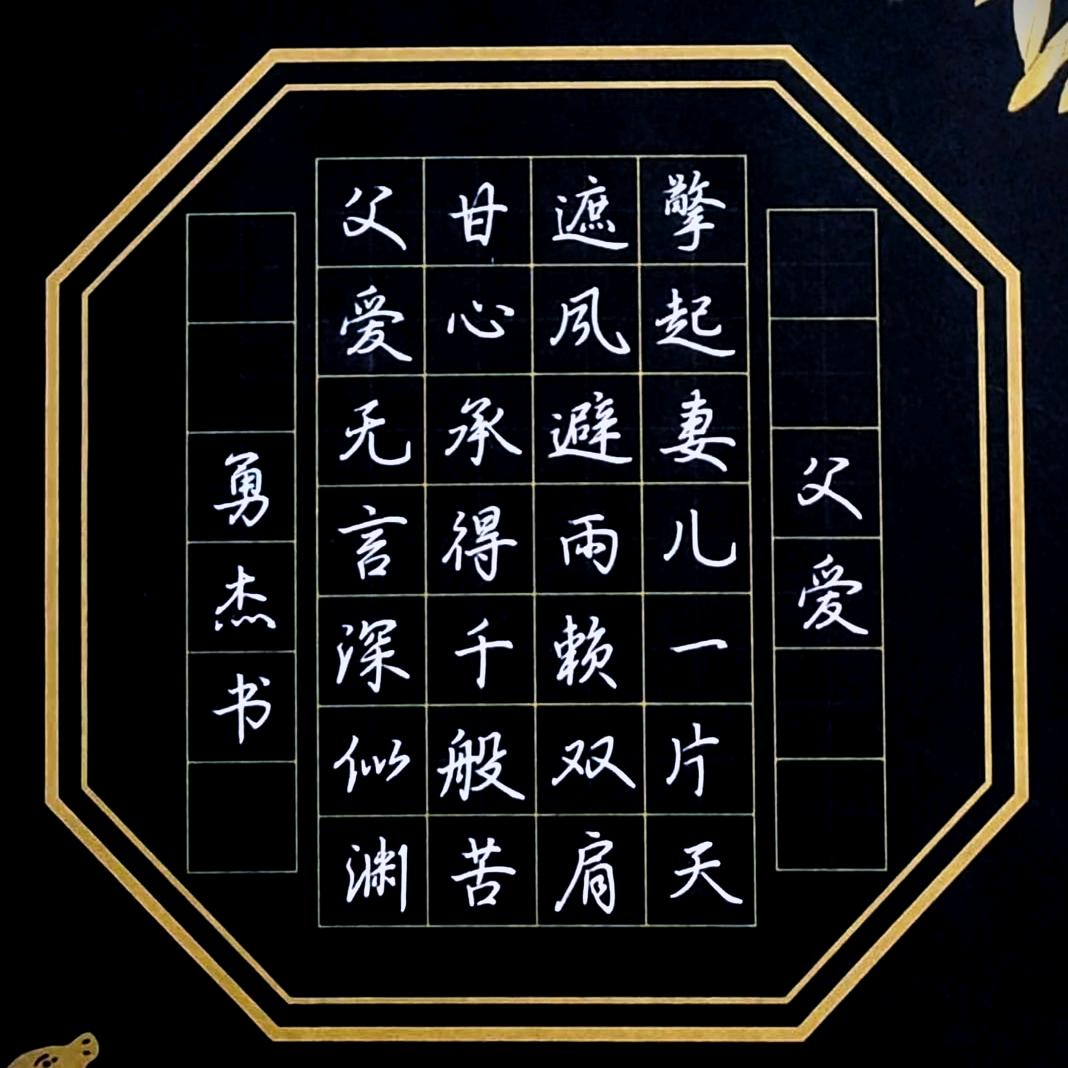 父爱
擎起妻儿一片天
遮风避雨赖双肩
甘心承得千般苦
父爱无言深似渊
勇杰书